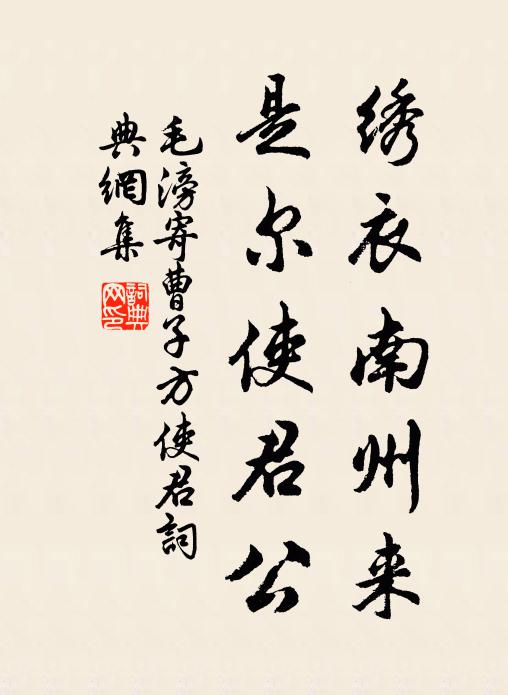 绣衣南州来
是尔使君公
毛滂寄曹子方使君詞
典網集
詞典网印